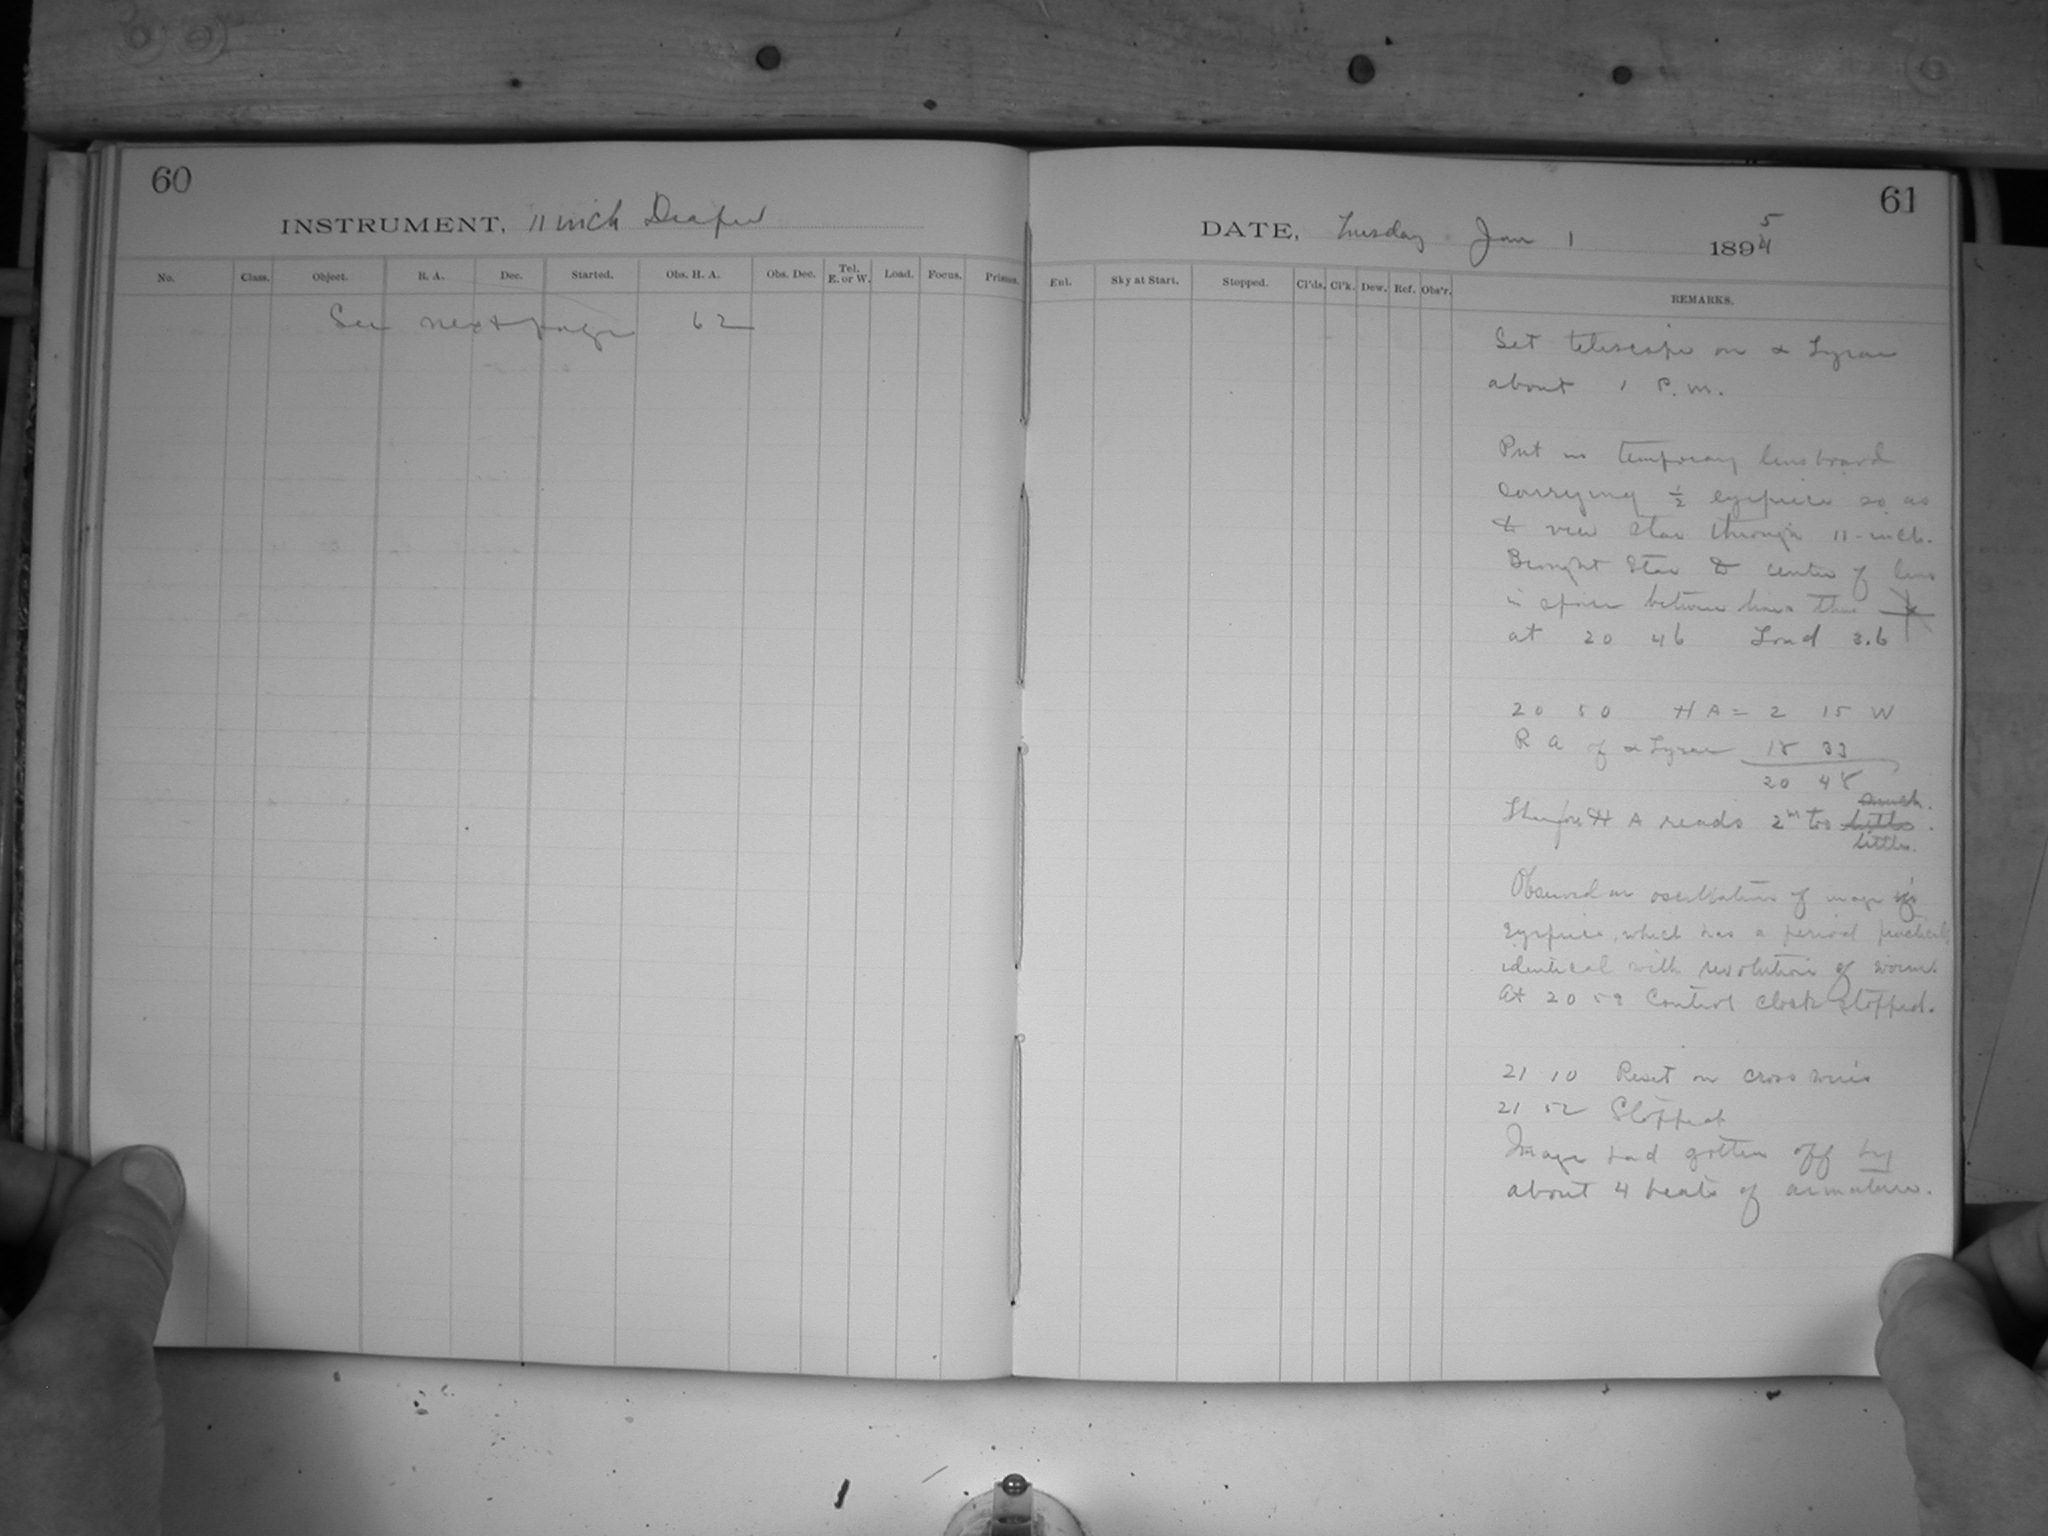 60
INSTRUMENT, 11 inch Draper
No. Class. Object. R. A. Dec. Started. Obs. H. A. Obs. Dec. Tel. E. or W. Load. Focus. Prisms.
See next page 62
61
DATE, Tuesday Jan 1 1894 5
Enl. Sky at Start. Stopped. Cl'ds. Cl'k. Dew. Ref. Obs'r. REMARKS.
Set telescope on α Lyrae
about 1 P.M.
Put in temporary lensboard
carrying ½ eyepiece so as
to view star through 11-inch.
Brought star to center of lens
in space between lines thus
at 20 46 Load 3.6
20 50 HA = 2 15 W
R A of α Lyrae 18 33
20 48
much.
Therefore H A reads 2m too little.
little.
Observed an oscillation of image in
eyepiece, which has a period practically
identical with revolution of worm.
At 20 59 Control clock stopped.
21 10 Reset on cross wires
21 52 Stopped
Image had gotten off by
about 4 beats of armature.